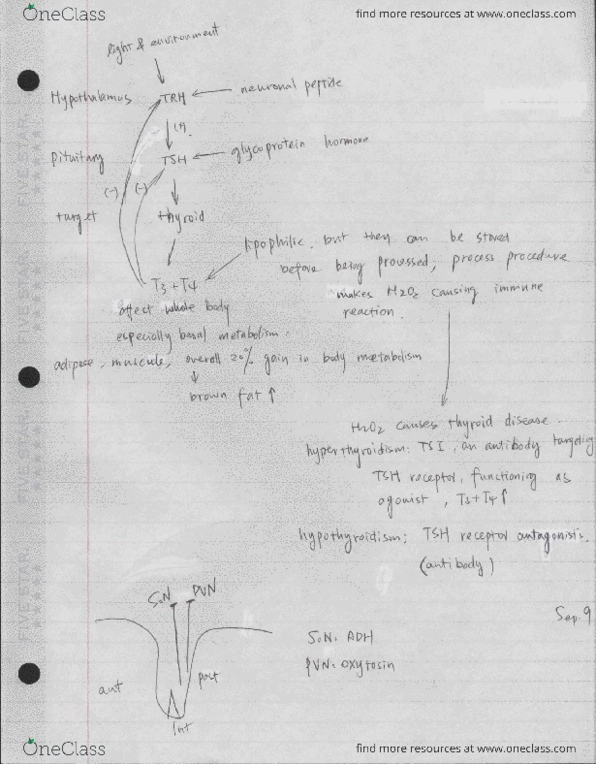 OneClass
find more resources at www.oneclass.com
light & environment
Hypothalamus TRH ← neuronal peptide
(+)
pituitary TSH ← glycoprotein hormone
(-) (-)
target thyroid
lipophilic, but they can be stored
before being processed, process procedure
T3 + T4
makes H2O2 causing immune
reaction.
affect whole body
especially basal metabolism.
adipose, muscule, overall 20% gain in body metabolism
brown fat ↑
H2O2 causes thyroid disease.
hyperthyroidism: TSI, an antibody targeting
TSH receptor, functioning as
agonist, T3+T4↑
hypothyroidism: TSH receptor antagonistic.
(antibody)
FIVE STAR.
FIVE STAR.
FIVE STAR.
Sep. 9
SoN PVN
SoN: ADH
PVN: Oxytosin
ant post
Int
OneClass
find more resources at www.oneclass.com